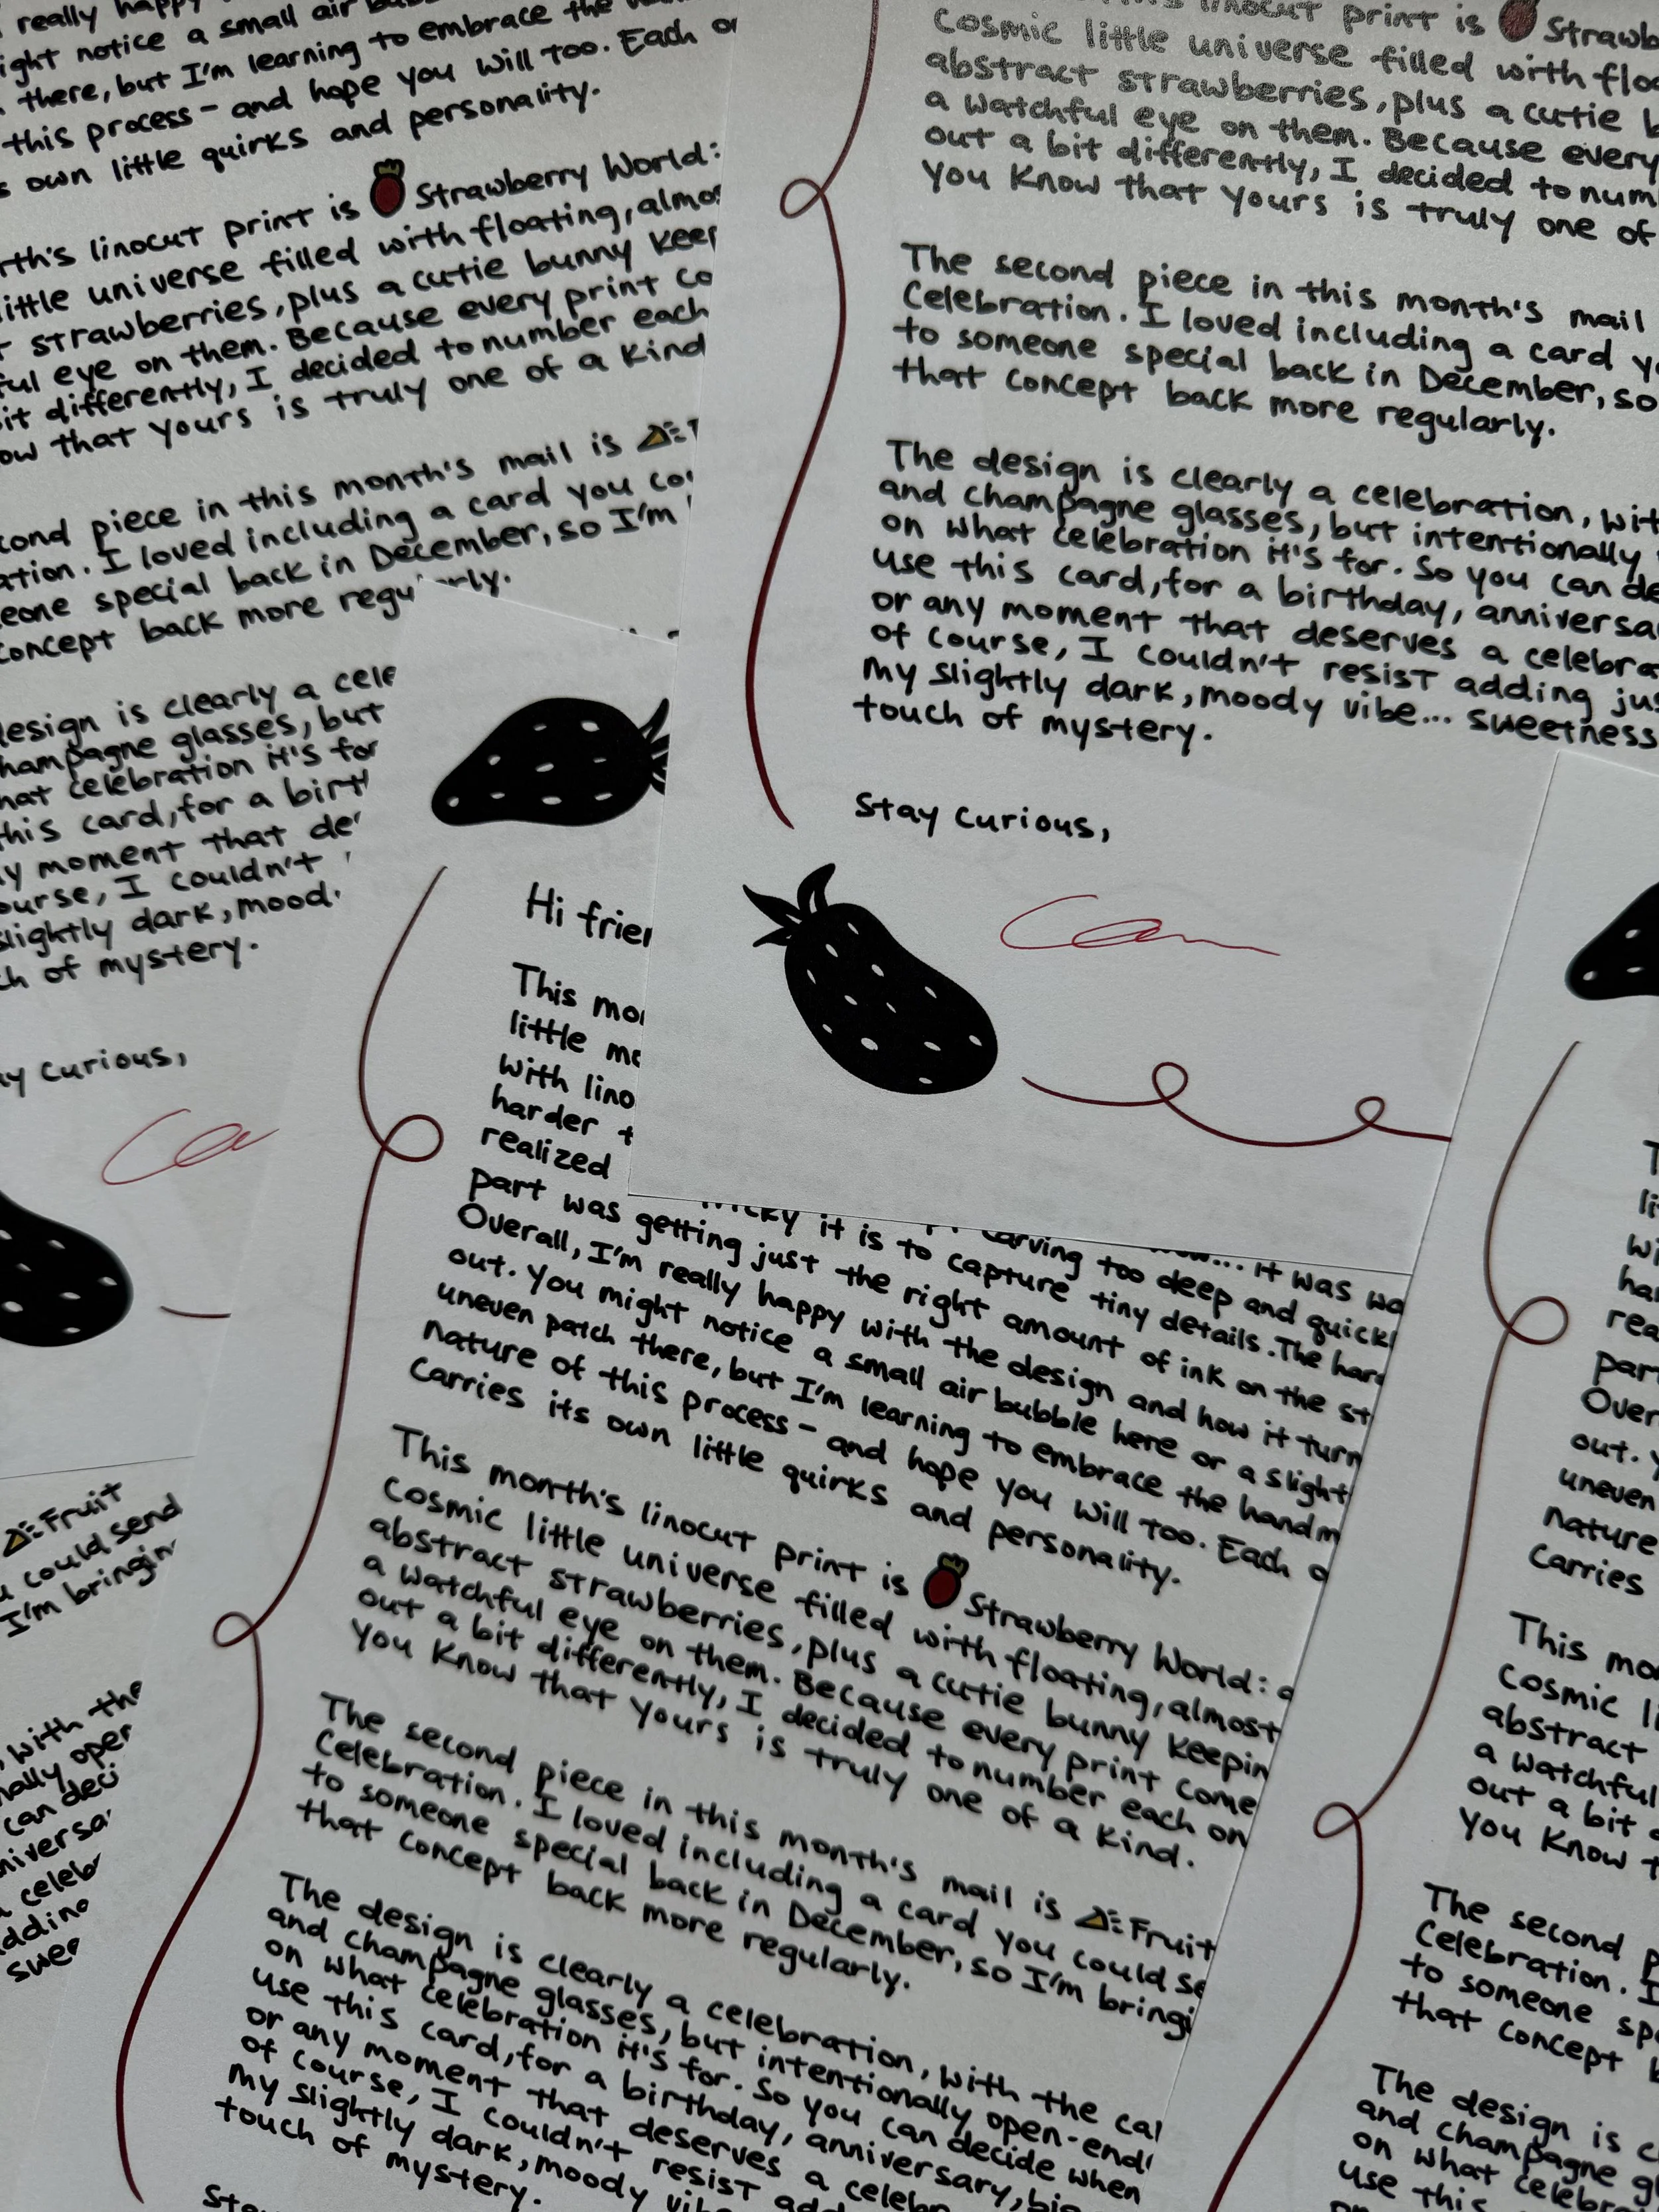 really happy
ight notice a small air
there, but I'm learning to embrace the
this process - and hope you will too. Each
own little quirks and personality.
linocut print is Strawberry World:
little universe filled with floating, almos
strawberries, plus a cutie bunny keep
ful eye on them. Because every print co
it differently, I decided to number each
ow that yours is truly one of a kind
cond piece in this month's mail is
ation. I loved including a card you co
eone special back in December, so I'm
concept back more regularly.
design is clearly a cele
hampagne glasses, but
hat celebration it's for
this card, for a birt
y moment that de
ourse, I couldn't
slightly dark, mood
ch of mystery.
ay curious,
Ca
Fruit
u could send
I'm bringin
, with the
nally open
can deci
niversa
celeb
adding
swee
linocut print is Strawb
Cosmic little universe filled with floa
abstract strawberries, plus a cutie b
a watchful eye on them. Because every
out a bit differently, I decided to num
you know that yours is truly one of
The second piece in this month's mail
Celebration. I loved including a card yo
to someone special back in December, so
that concept back more regularly.
The design is clearly a celebration, wit
and champagne glasses, but intentionally
on what celebration it's for. So you can de
use this card, for a birthday, anniversa
or any moment that deserves a celebra
of course, I couldn't resist adding jus
my slightly dark, moody vibe... sweetness
touch of mystery.
Stay curious,
Cam
Hi frien
This mon
little me
with lino
harder t
realized
tricky it is to carving too deep and quickl
part was getting just the right amount of ink on the st
Overall, I'm really happy with the design and how it turn
out. You might notice a small air bubble here or a slight
uneven patch there, but I'm learning to embrace the handm
nature of this process - and hope you will too. Each o
carries its own little quirks and personality.
This month's linocut print is Strawberry World: a
Cosmic little universe filled with floating, almost
abstract strawberries, plus a cutie bunny keepin
a watchful eye on them. Because every print come
out a bit differently, I decided to number each on
you know that yours is truly one of a kind.
The second piece in this month's mail is Fruit
Celebration. I loved including a card you could se
to someone special back in December, so I'm bringi
that concept back more regularly.
The design is clearly a celebration, with the ca
and champagne glasses, but intentionally open-end
on what celebration it's for. So you can decide when
use this card, for a birthday, anniversary, big
or any moment that deserves a celebr
of course, I couldn't resist add
my slightly dark, moody vib
touch of mystery.
Sta
T
li
wi
har
rea
part
Over
out. Y
uneven
nature
carries
This mo
Cosmic li
abstract
a watchful
out a bit
you know t
The second p
Celebration. I
to someone spe
that concept b
The design is c
and champagne gl
on what celebra
use this